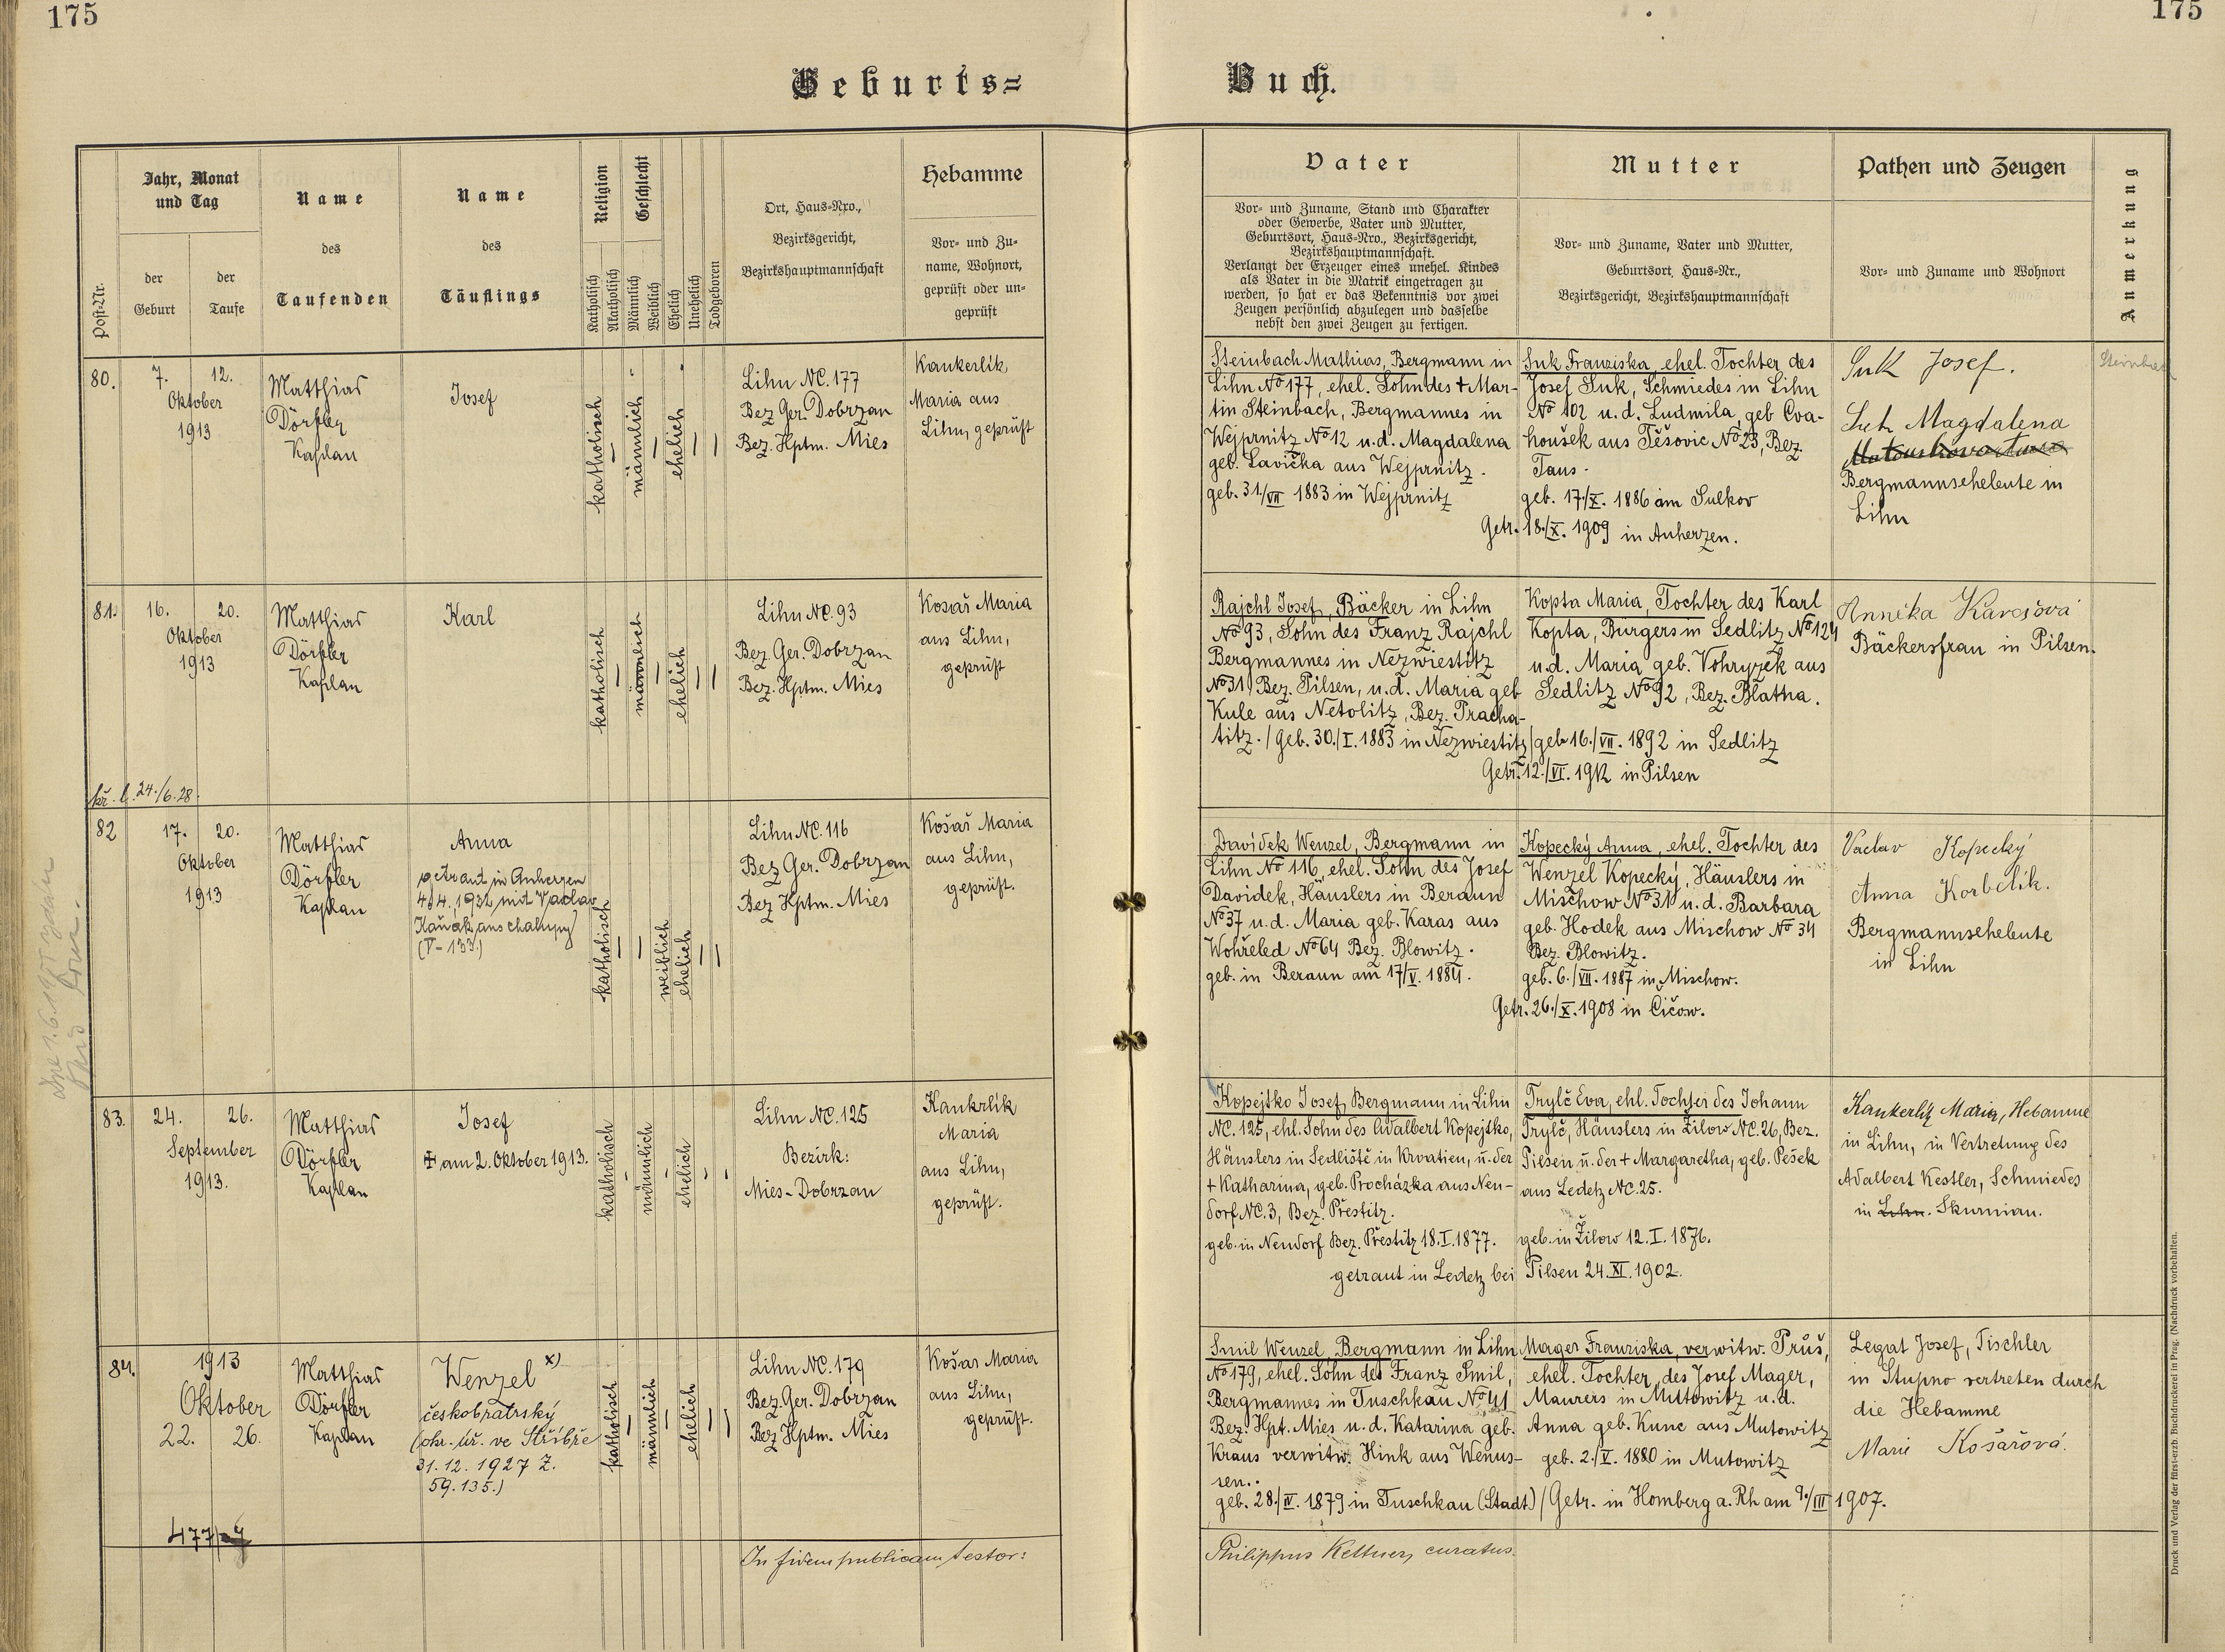 175
175
Geburts=
Buch.
Post-Nr.
Jahr, Monat
und Tag
der
Geburt
der
Taufe
Name
des
Taufenden
Name
des
Täuflings
Religion
Katholisch
Akatholisch
Geschlecht
Männlich
Weiblich
Ehelich
Unehelich
Todgeboren
Ort, Haus=Nro.,
Bezirksgericht,
Bezirkshauptmannschaft
Hebamme
Vor= und Zu=
name, Wohnort,
geprüft oder un=
geprüft
Vater
Vor= und Zuname, Stand und Charakter
oder Gewerbe, Vater und Mutter,
Geburtsort, Haus=Nro., Bezirksgericht,
Bezirkshauptmannschaft.
Verlangt der Erzeuger eines unehel. Kindes
als Vater in die Matrik eingetragen zu
werden, so hat er das Bekenntnis vor zwei
Zeugen persönlich abzulegen und dasselbe
nebst den zwei Zeugen zu fertigen.
Mutter
Vor= und Zuname, Vater und Mutter,
Geburtsort, Haus=Nr.,
Bezirksgericht, Bezirkshauptmannschaft
Pathen und Zeugen
Vor= und Zuname und Wohnort
Anmerkung
80.
7. 12.
Oktober
1913
Matthias
Dörfler
Kaplan
Josef
katholisch
männlich
ehelich
Lihn NC. 177
Bez Ger. Dobrzan
Bez. Hptm. Mies
Kankerlík,
Maria aus
Lihn, geprüft
Steinbach Mathias, Bergmann in
Lihn No 177, ehel. Sohn des + Mar-
tin Steinbach, Bergmannes in
Wejprnitz No 12 u. d. Magdalena
geb. Lavička aus Wejprnitz.
geb. 31/VII 1883 in Wejprnitz
Suk Franziska, ehel. Tochter des
Josef Suk, Schmiedes in Lihn
No 102 u. d. Ludmila, geb Cva-
houšek aus Těšovic No 23, Bez.
Taus.
geb. 17/X. 1886 am Sulkov
Getr. 18./X. 1909 in Auherzen.
Suk Josef.
Suk Magdalena
Bergmannseheleute in
Lihn
81.
16. 20.
Oktober
1913
Matthias
Dörfler
Kaplan
Karl
katholisch
männlich
ehelich
Lihn NC. 93
Bez. Ger. Dobrzan
Bez. Hptm. Mies
Kosař Maria
aus Lihn,
geprüft
Rajchl Josef, Bäcker in Lihn
No 93, Sohn des Franz Rajchl
Bergmannes in Nezwiestitz
No 31, Bez. Pilsen, u. d. Maria geb
Kule aus Netolitz, Bez. Pracha-
titz. / Geb. 30./I. 1883 in Nezwiestitz
Kopta Maria, Tochter des Karl
Kopta, Bürgers in Sedlitz No 124
u. d. Maria geb. Vohryzek aus
Sedlitz No 92, Bez. Blatna.
geb 16./VII. 1892 in Sedlitz
Getr. 12./VI. 1912 in Pilsen
Bäckersfrau in Pilsen.
kř. l. 24./6.28.
82
17. 20.
Oktober
1913
Matthias
Dörfler
Kaplan
Anna
getraut in Auherzen
4./4. 1932 mit Vaclav
Kaňák aus chalupy
(V-133.)
katholisch
weiblich
ehelich
Lihn NC. 116
Bez Ger. Dobrzan
Bez Hptm. Mies
Košař Maria
aus Lihn,
geprüft.
Davídek Wenzel, Bergmann in
Lihn No 116, ehel. Sohn des Josef
Davidek, Häuslers in Beraun
No 37 u. d. Maria geb. Karas aus
Wohřeled No 64 Bez. Blowitz.
geb. in Beraun am 17/V. 1884.
Kopecký Anna, ehel. Tochter des
Wenzel Kopecký, Häuslers in
Mischow No 31 u. d. Barbara
geb. Hodek aus Mischow No 34
Bez. Blowitz.
geb. 6./VII. 1887 in Mischow.
Getr. 26./X. 1908 in Čičow.
Vaclav Kopecký
Anna Korbelík.
Bergmannseheleute
in Lihn
83.
24. 26.
September
1913.
Matthias
Dörfler
Kaplan
Josef
+ am 2. Oktober 1913.
katholisch
männlich
ehelich
Lihn NC. 125
Bezirk:
Mies-Dobrzan
Kankrlík
Maria
aus Lihn,
geprüft.
Kopejtko Josef, Bergmann in Lihn
NC. 125, ehl. Sohn des Adalbert Kopejtko,
Häuslers in Sedliště in Kroatien, u. der
+ Katharina, geb. Procházka aus Neu-
dorf NC. 3, Bez. Přestitz.
geb. in Neudorf Bez. Přestitz 18. I. 1877.
Trylč Eva, ehl. Tochter des Johann
Trylč, Häuslers in Žilow NC. 26, Bez.
Pilsen u. der + Margaretha, geb. Pešek
aus Ledetz NC. 25.
geb. in Žilow 12. I. 1876.
getraut in Ledetz bei Pilsen 24. XI. 1902.
Kankerlik Maria, Hebamme
in Lihn, in Vertretung des
Adalbert Kestler, Schmiedes
in Lihn. Skurnian.
84.
1913
Oktober
22. 26.
Matthias
Dörfler
Kaplan
Wenzel x)
českobratrský
(ohr. úř. ve Stříbře
31. 12. 1927 Z.
59.135.)
katholisch
männlich
ehelich
Lihn NC. 179
Bez. Ger. Dobrzan
Bez Hptm. Mies
Košar Maria
aus Lihn,
geprüft.
Smil Wenzel, Bergmann in Lihn
No 179, ehel. Sohn des Franz Smil,
Bergmannes in Tuschkau No 41
Bez. Hpt. Mies u. d. Katarina geb.
Kraus verwitw. Hink aus Wenus-
sen.
geb. 28./IV. 1879 in Tuschkau (Stadt)
Mager Franziska, verwitw. Průš,
ehel. Tochter des Josef Mager,
Maurers in Mutowitz u. d.
Anna geb. Kunc aus Mutowitz
geb. 2./V. 1880 in Mutowitz
Getr. in Homberg a. Rh am 9./III 1907.
Legat Josef, Tischler
in Stupno vertreten durch
die Hebamme
Marie Košařová.
In fidem publicam testor:
Philippus Kettner, curatus.
Druck und Verlag der fürst-erzb. Buchdruckerei in Prag. (Nachdruck vorbehalten.